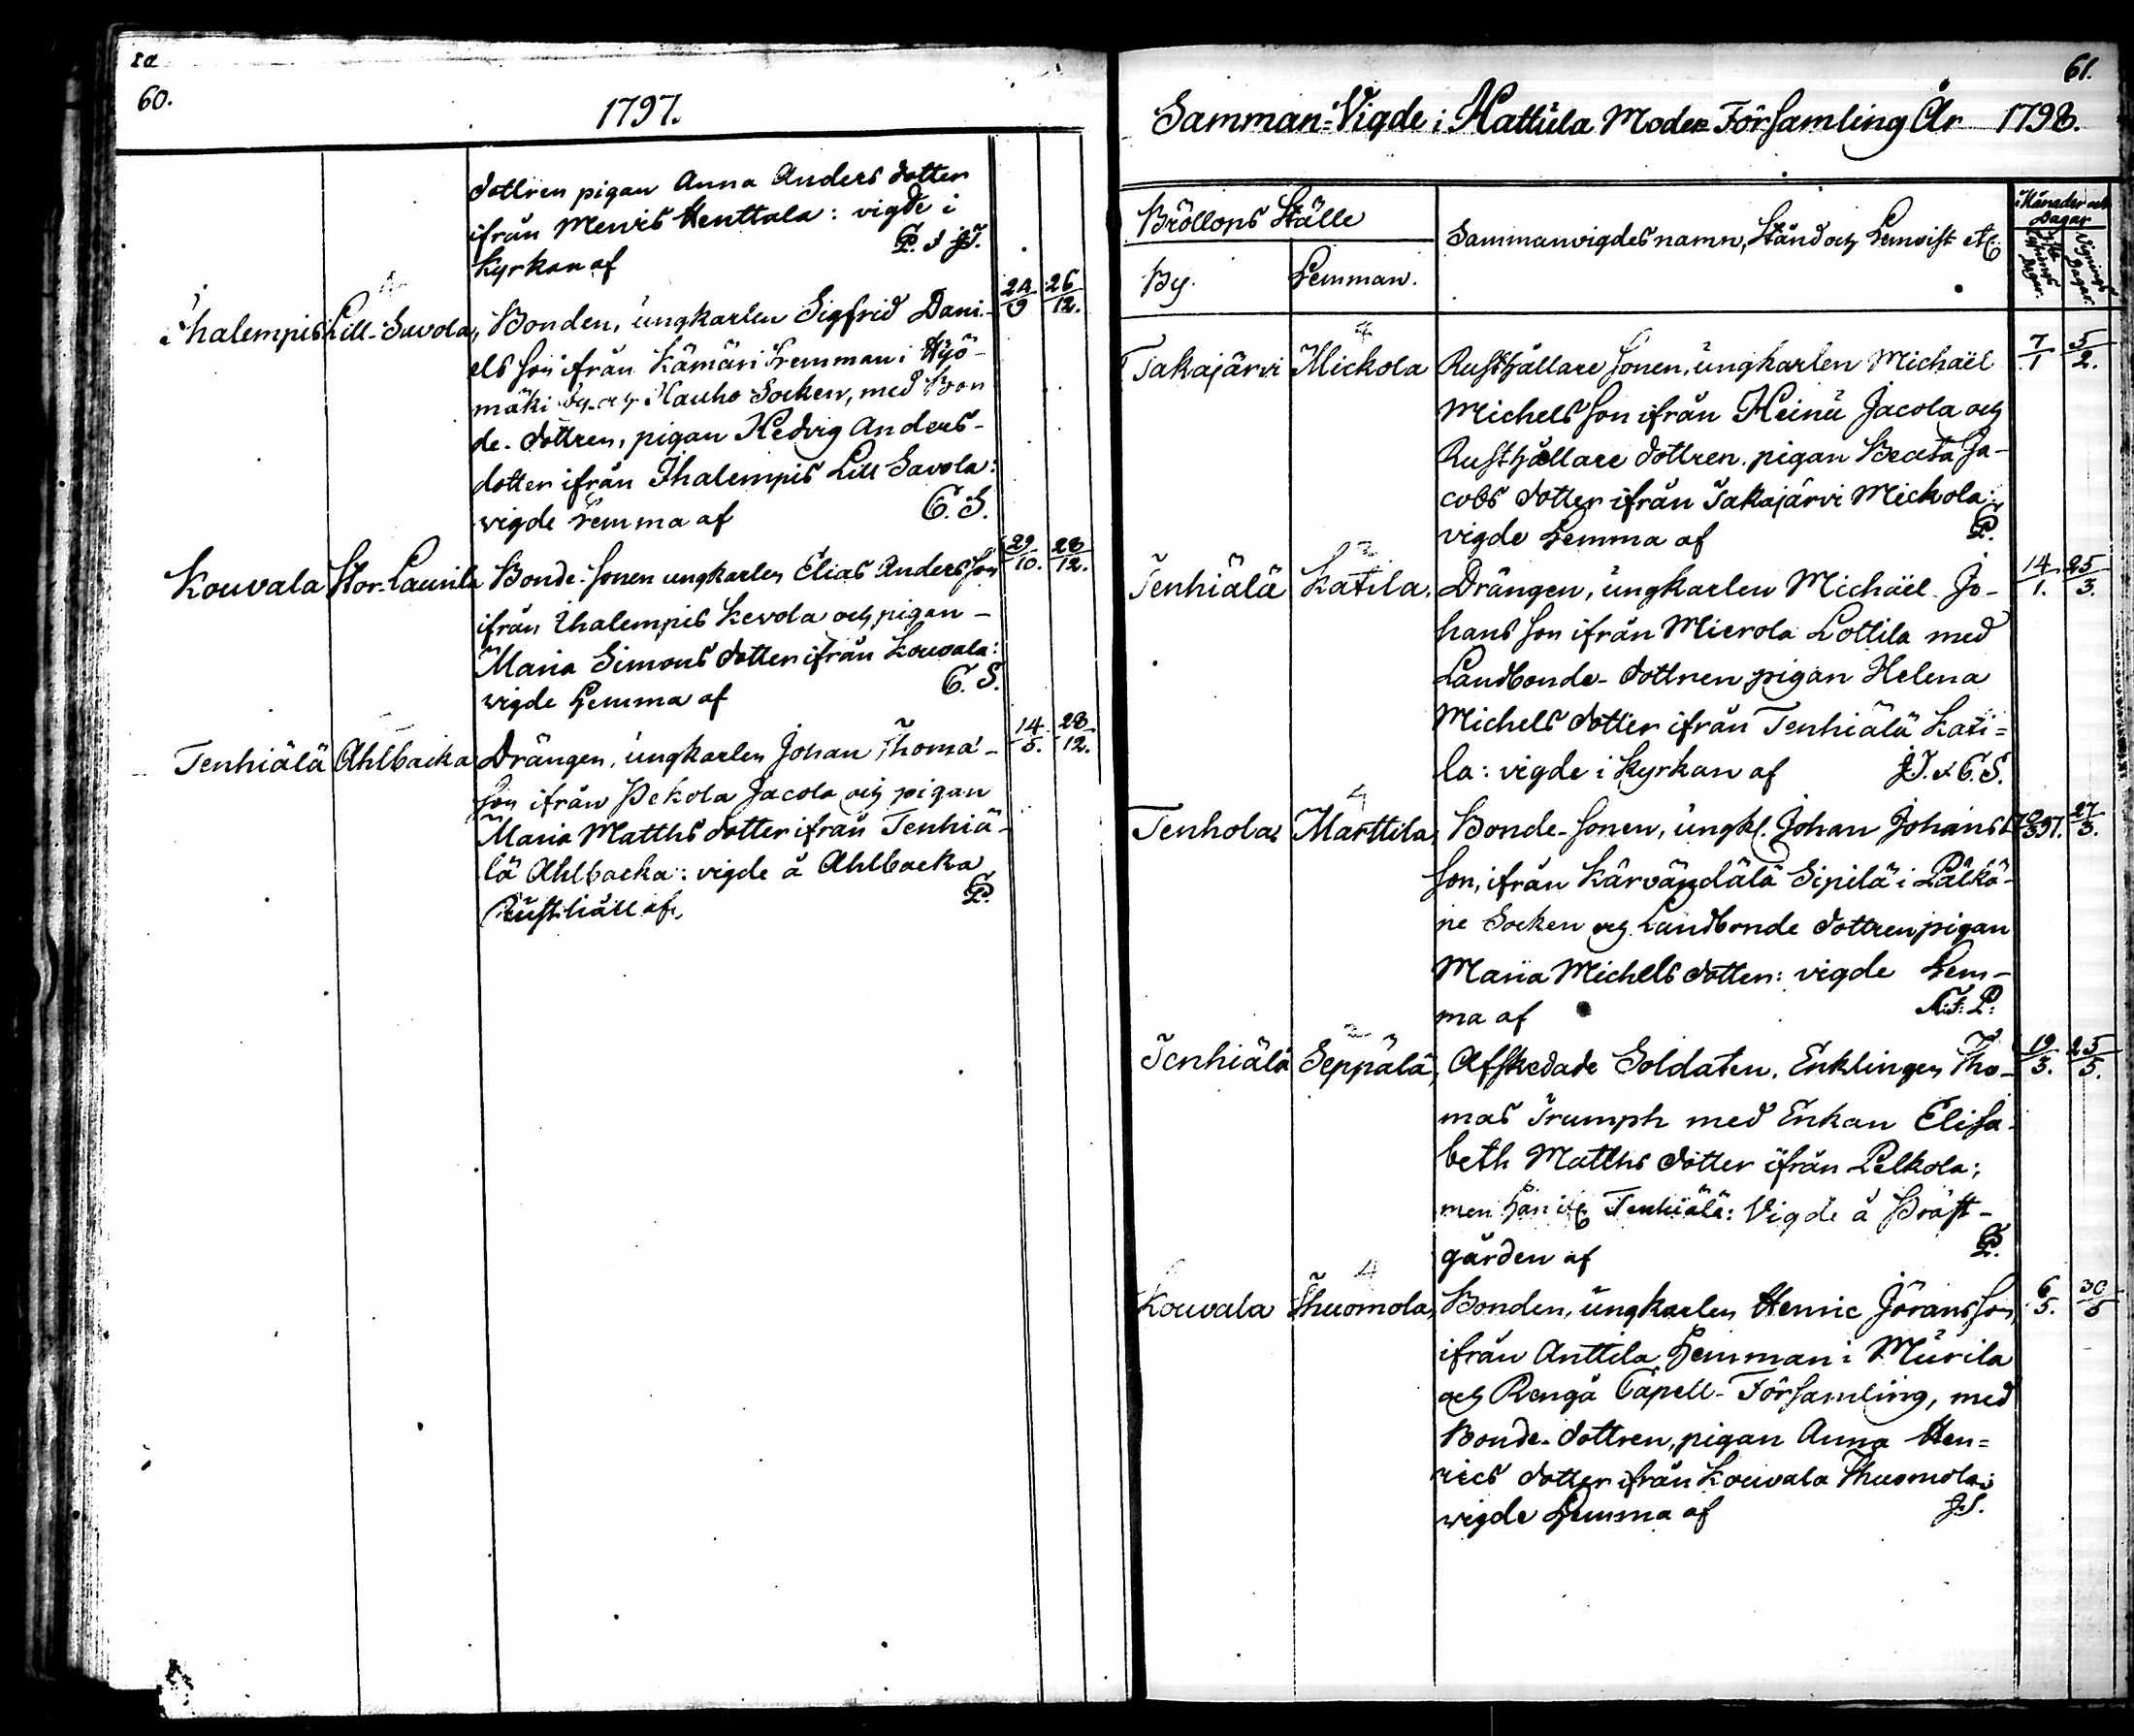 60.
1797.
dottren pigan Anna Anders dotter
ifrån Mervis Henttala: vigde i
Kyrkan af
Ihalempis Lill-Savola, Bonden, ungkarlen Sigfrid Dani- 24/9 26/12.
els Son ifrån Kämäri Hemman i Hyö-
mäki by och Hauho Socken, med Bon
de-dottren, pigan Hedvig Anders-
dotter ifrån Ihalempis Lill Savola:
vigde hemma af C.S.
Kouvala Stor-Laurila Bonde-Sonen ungkarlen Elias Anders Son 29/10. 28/12.
ifrån Ihalempis Kevola och pigan
Maria Simons dotter ifrån Kouvala:
vigde hemma af C.S.
Tenhiälä Ahlbacka Drängen, ungkarlen Johan Thoma- 14/5. 28/12.
Son ifrån Pekola Jacola och pigan
Maria Matths dotter ifrån Tenhiä-
lä Ahlbacka: vigde å Ahlbacka
Rusthåll af,
61.
Samman-Vigde i Hattula Moder Församling År 1798.
Bröllops Ställe
Sammanvigdes namn, Stånd och Hemvist etc.
Månader och
Dagar
By. Hemman.
Takajärvi Mickola Rusthållare Sonen, ungkarlen Michaël 7/1 5/2.
Michels Son ifrån Heinu Jacola och
Rusthållare dottren pigan Beata Ja-
cobs dotter ifrån Takajärvi Mickola:
vigde hemma af
Tenhiälä Katila, Drängen, ungkarlen Michaël Jo- 14/1. 25/3.
hans Son ifrån Mierola Lottila med
Landbonde-dottren pigan Helena
Michels dotter ifrån Tenhiälä Kati=
la: vigde i Kyrkan af J.T. & C.S.
Tenhola Marttila, Bonde-Sonen, ungkl. Johan Johans 27/3.
Son, ifrån Kärväндälä Sipilä i Pälkä-
ne Socken och Landbonde dottren pigan
Maria Michels dotter: vigde hem-
ma af
Tenhiälä Seppälä, Afskedade Soldaten, Enklingen Tho- 19/3. 25/5.
mas Trumph med Enkan Elisa-
beth Matths dotter ifrån Pelkola:
men han if. Tenhiälä: Vigde å Präst-
gården af
Kouvala Thuomola, Bonden, ungkarlen Henric Jörans Son, 6/5. 30/5
ifrån Anttila Hemman i Murila
och Rengå Capell-Församling, med
Bonde-dottren, pigan Anna Hen=
rics dotter ifrån Kouvala Thuomola:
vigde hemma af